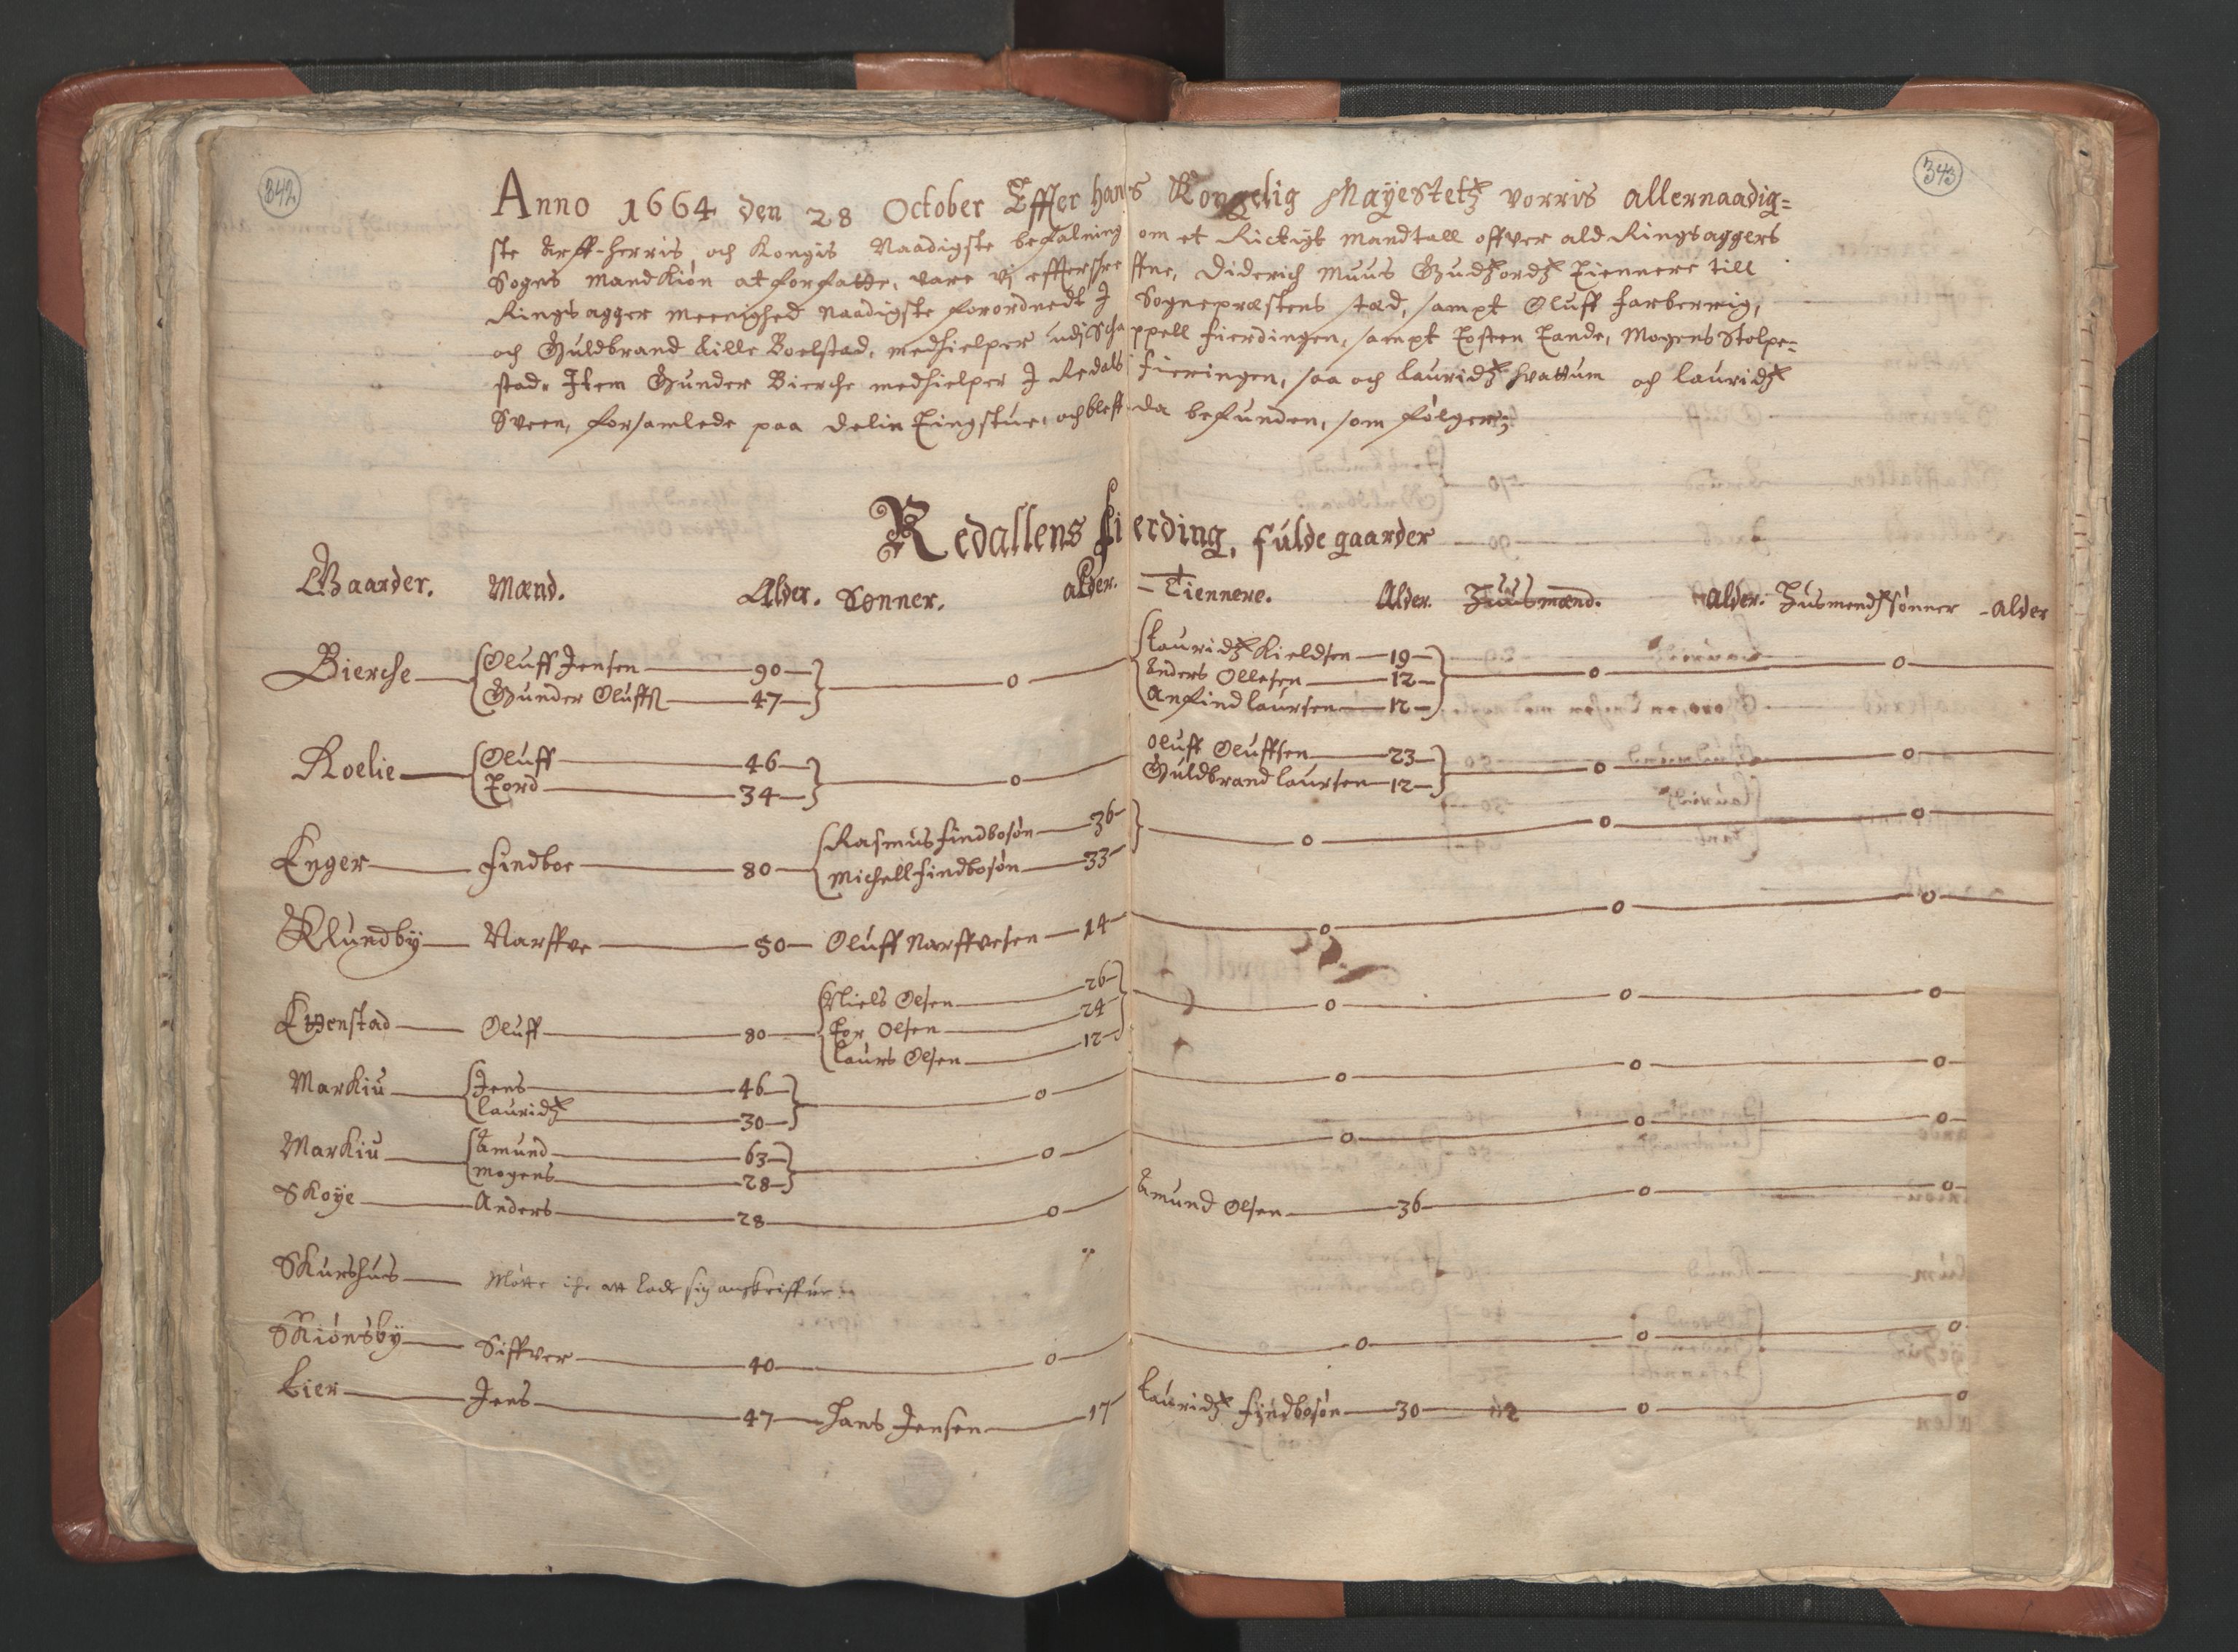 342
343
Anno 1664 den 28 October Effter hans Kongelig Mayestetz vorris allernaadig=
ste Arff-Herris och Kongis Naadigste befalning om et Rictigt Mandtall offver ald Ringsaggers
Sogns Mandkiøn at forfatte, vare vj effterschreffne, Diderich Muus Gudz ordz Tiennere till
Ringsagger Meenighed Naadigste forordnedt I Sognepræstens sted, sampt Oluff Farberrig,
och Guldbrand Lille Boelstad, medhielper udj Schappell fierdingen, sampt Tosten Tande, Mogens Stolpe=
stad. Item Gunder Bierche medhielper I Redals fieringen, saa och Lauridz Hvattum och Lauridz
Sveen, forsamlede paa Delin Tingstue, och bleff da befunden, som følger;
Redallens fierding, fulde gaarder
Gaarder. Mænd. Alder. Sønner. alder. Tiennere. Alder. Husmænd. alder. Husmendz sønner - alder
Bierche Oluff Jensen 90 0 Lauridz Kieldsen 19 0 0
Gunder Oluffs 47 Anders Ollesen 12
Anfind Laursen 12
Roelie Oluff 46 0 Oluff Oluffsen 23 0 0
Tord 34 Guldbrand Laursen 12
Enger Findboe 80 Rasmus Findbosøn 36 0 0 0
Michell Findbosøn 33
Klundby Narffve 50 Oluff Narffvesen 14 0 0 0
Ettenstad Oluff 80 Niels Olsen 26 0 0 0
Tor Olsen 24
Laurs Olsen 12
Markiu Jens 46 0 0 0 0
Lauridz 30
Markiu Amund 63 0 0 0 0
Mogens 28
Skoye Anders 28 0 Amund Olsen 36 0 0
Skurshus Møtte iche att lade sig anskriffve
Skiønsby Siffver 40 0 0 0 0
Lier Jens 47 Hans Jensen 17 Lauridz Fyndbosøn 30 0 0